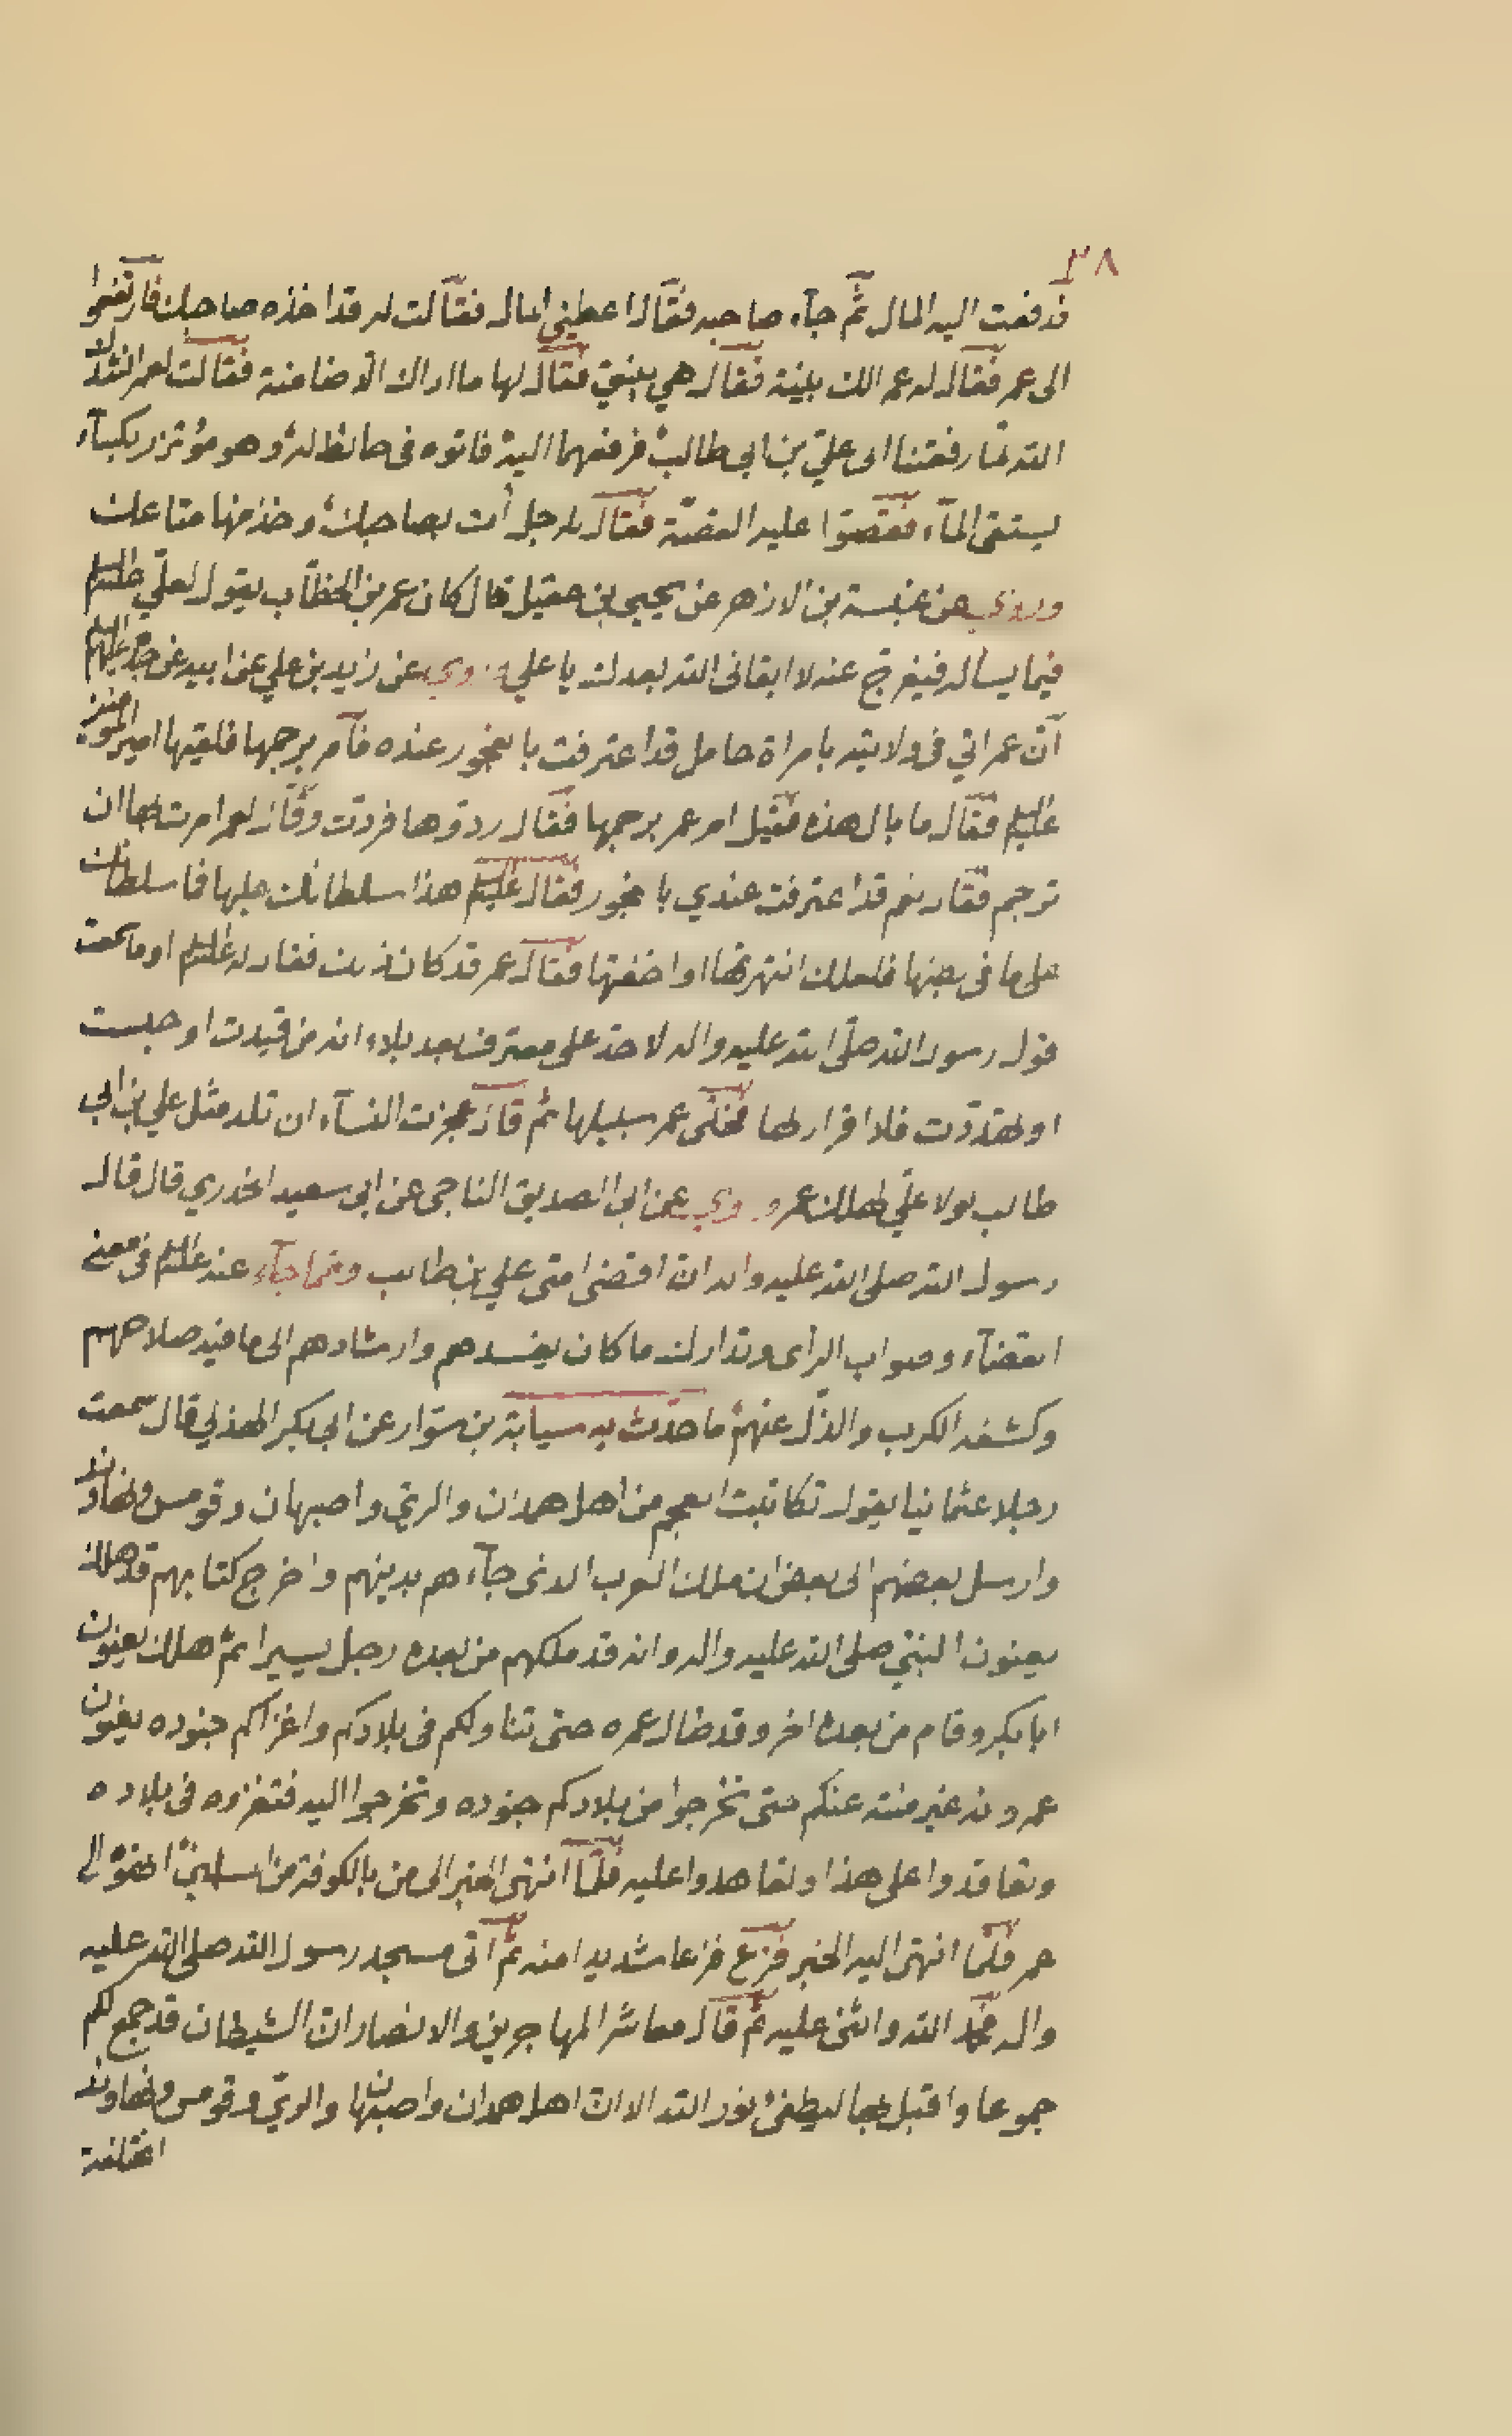 ٣٨
فدفعت اليه المال ثم جآء صاحبه فقال اعطينى المال فقالت له قد اخذه صاحبك فارتفعوا
الى عمر فقال له عمر الك بينة فقال هي بينتي فقال لها ما اراك الا ضامنة فقالت لعمر انشدك
الله لما رفعتنا الى علي بن ابى طالب فرفعهما اليه فاتوه فى حائط له وهو مؤتزر بكسآء
يستقى المآء فقصوا عليه القصة فقال للرجل ائت بصاحبك وخذ منها متاعك
وروي عن عنبسة بن الازهر عن يحيى بن عقيل قال كان عمر بن الخطاب يقول لعلي عليه السلم
فيما يساله فيفرج عنه لا ابقانى الله بعدك يا علي وروي عن زيد بن علي عن ابيه عن جده عليهم السلم
ان عمر اتي فى ولايته بامراة حامل قد اعترفت بالفجور عنده فامر برجمها فلقيها امير المؤمنين
عليه السلم فقال ما بال هذه فقيل امر عمر برجمها فقال ردوها فردت وقال لعمر امرت بها ان
ترجم فقال نعم قد اعترفت عندي بالفجور فقال عليه السلم هذا سلطانك عليها فما سلطانك
على ما فى بطنها فلعلك انتهرتها او اخفتها فقال عمر قد كان ذلك فقال له عليه السلم او ما سمعت
قول رسول الله صلى الله عليه واله لا حد على معترف بعد بلاء انه من قيدت او حبست
او تهددت فلا اقرار لها فخلى عمر سبيلها ثم قال عجزت النسآء ان تلد مثل علي بن ابى
طالب لولا علي لهلك عمر وروي عن ابى الصديق الناجى عن ابى سعيد الخدري قال قال
رسول الله صلى الله عليه واله ان اقضى امتى علي بن طالب ومما جآء عنه عليه السلم فى معنى
القضآء وصواب الراى وتدارك ما كان يفسدهم وارشادهم الى ما فيه صلاحهم
وكشف الكرب والذل عنهم ما حدث به سيابة بن سوار عن ابى بكر الهذلي قال سمعت
رجلا عثمانيا يقول تكاتبت العجم من اهل همدان والري واصبهان وقومس ونهاوند
وارسل بعضهم الى بعض ان ملك العرب الذى جآءهم بدينهم واخرج كتابهم قد هلك
يعنون النبي صلى الله عليه واله وانه قد ملكهم من بعده رجل يسيرا ثم هلك يعنون
ابا بكر وقام من بعده اخر وقد طال عمره حتى تناولكم فى بلادكم واغزاكم جنوده يعنون
عمر وانه غير منته عنكم حتى تخرجوا من بلادكم جنوده وتخرجوا اليه فتغزوه فى بلاده
وتعاقدوا على هذا وتعاهدوا عليه فلما انتهى الخبر الى من بالكوفة من المسلمين انهوه الى
عمر فلما انتهى اليه الخبر فزع فزعا شديدا منه ثم اتى مسجد رسول الله صلى الله عليه
واله فحمد الله واثنى عليه ثم قال معاشر المهاجرين والانصار ان الشيطان قد جمع لكم
جموعا واقبل بها ليطفئ نور الله الا ان اهل همدان واصبهان والري وقومس ونهاوند